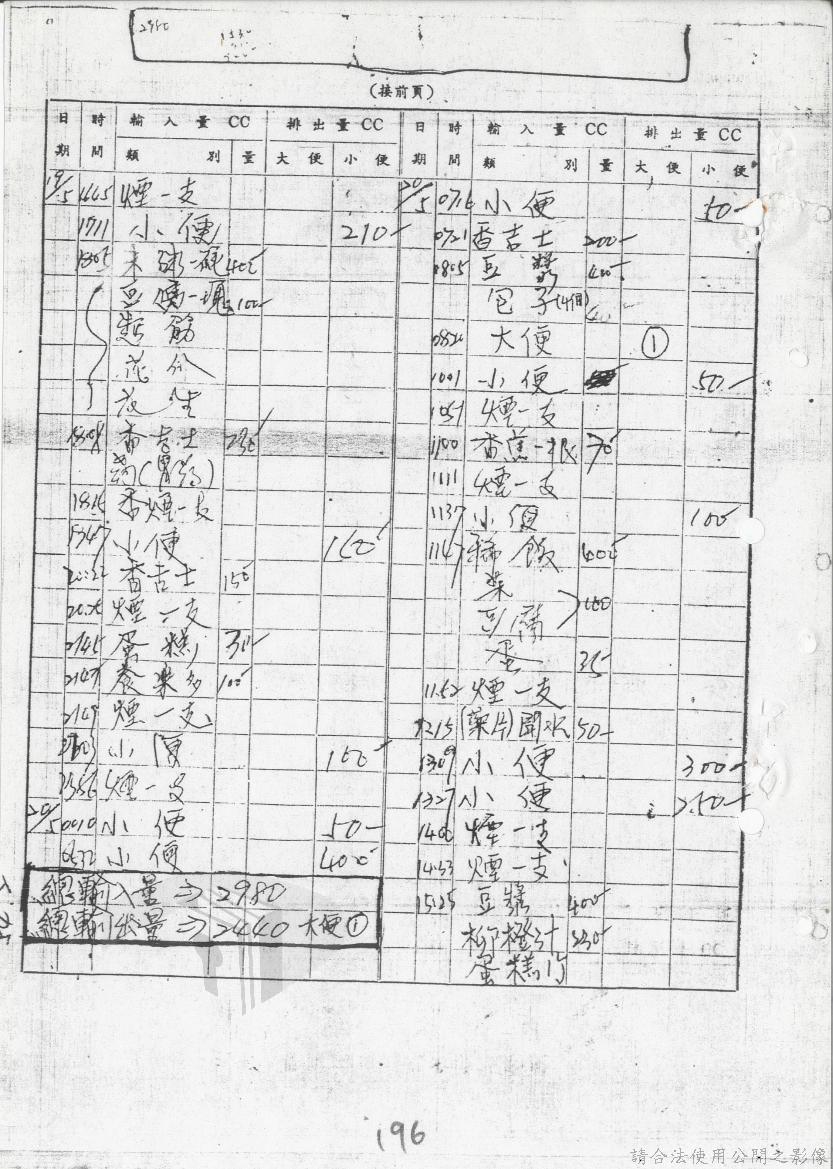 2980
(接前頁)
日期 時間 輸入量CC 類別 量 排出量CC 大便 小便
19/5 1445 煙一支
1711 小便 210-
1805
豆腐一塊 100
麵筋
花生
香吉士 230
藥(胃藥)
1816 香煙一支
小便
2022 香吉士 150
煙一支
2145 蛋糕 35
2147 養樂多 100
2149 煙一支
小便 100
2356 煙一支
20/5 0010 小便 50-
0532 小便 400
總輸入量⇒2980
總輸出量⇒2440 大便①
日期 時間 輸入量CC 類別 量 排出量CC 大便 小便
20/5 0716 小便 50-
0721 香吉士 200-
0805 豆漿 400
包子(4個)
大便 ①
1001 小便 50-
1051 煙一支
1100 香蕉一根 70
1111 煙一支
1137 小便 100
1147 稀飯 400
菜
豆腐 100
蛋 35
1152 煙一支
1215 (藥片)開水 50-
1309 小便 300-
1327 小便 250-
1400 煙一支
1453 煙一支
1525 豆漿 400
柳橙汁 330
蛋糕
196
請合法使用公開之影像